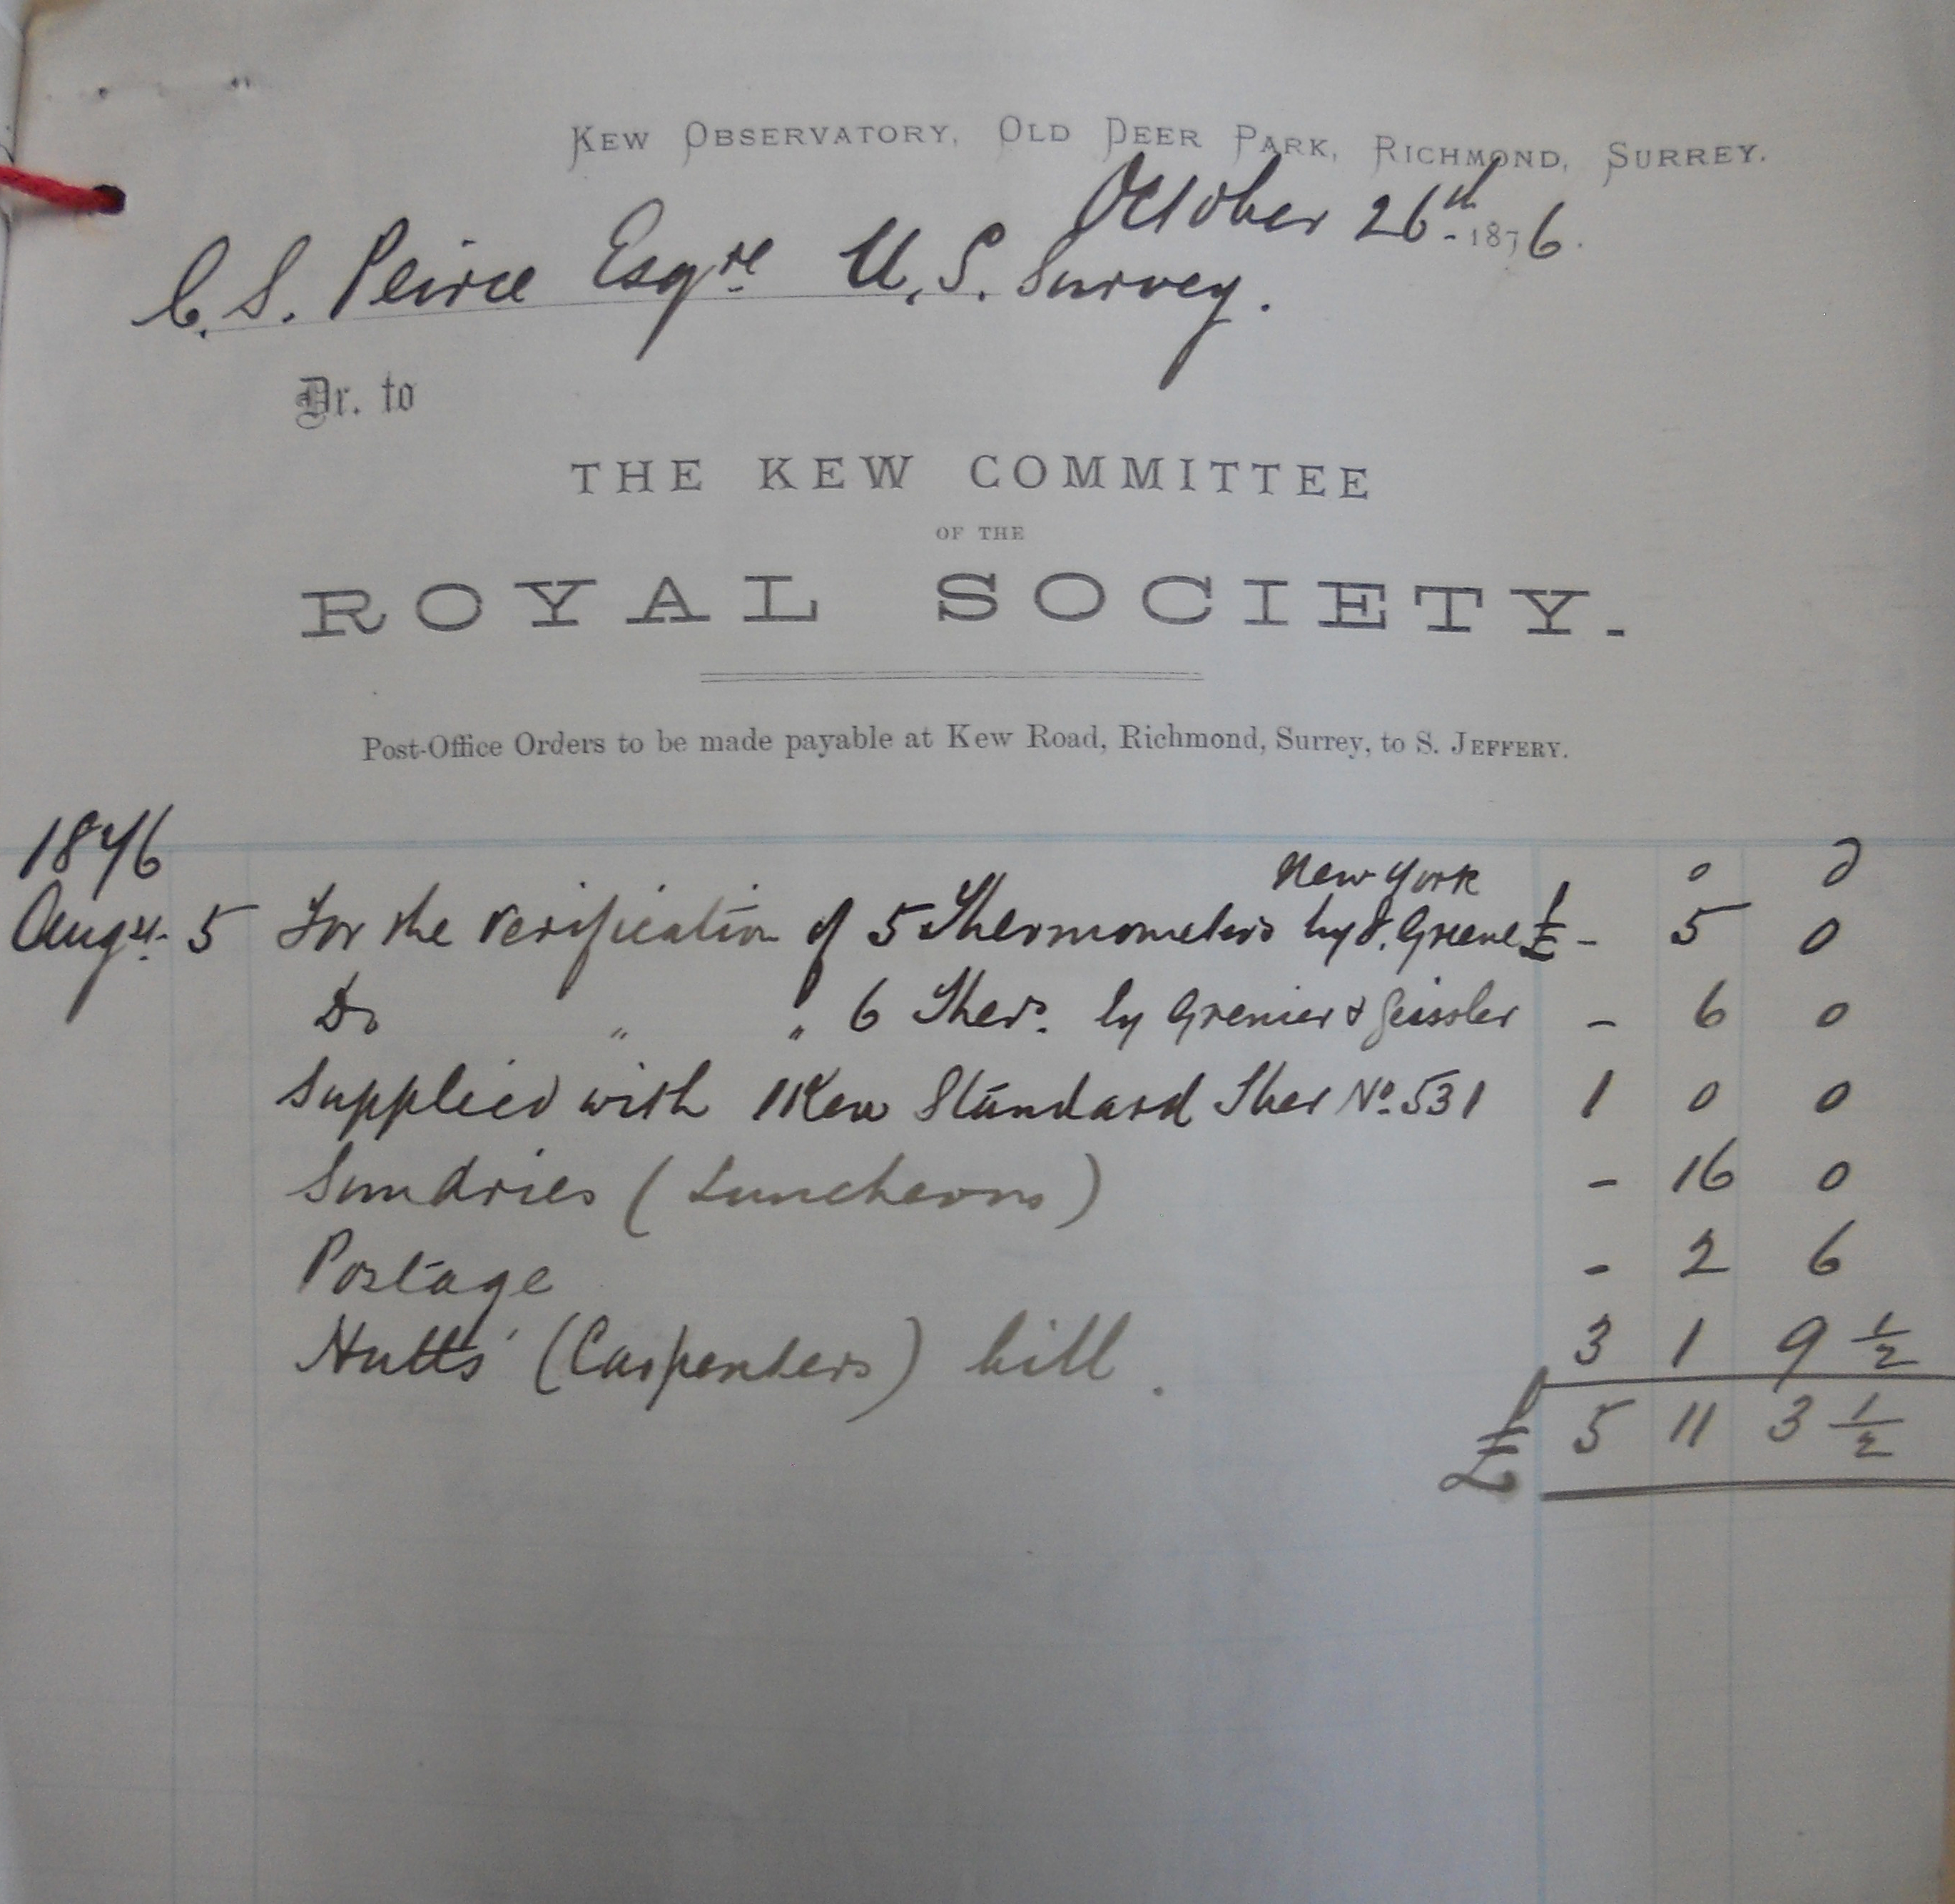 KEW OBSERVATORY, OLD DEER PARK, RICHMOND, SURREY.
October 26th 1876.
C. S. Peirce Esqre U. S. Survey.
Dr. to
THE KEW COMMITTEE
OF THE
ROYAL SOCIETY.
Post-Office Orders to be made payable at Kew Road, Richmond, Surrey, to S. JEFFERY.
1876
New York £ s d
Augst. 5 For the verification of 5 Thermometers by J. Greene - 5 0
Do " " 6 Thers. by Grenier & Geissler - 6 0
Supplied with 1 Kew Standard Ther No. 531 1 0 0
Sundries (Luncheons) - 16 0
Postage - 2 6
Hutts' (Carpenters) bill. 3 1 9 1/2
£ 5 11 3 1/2